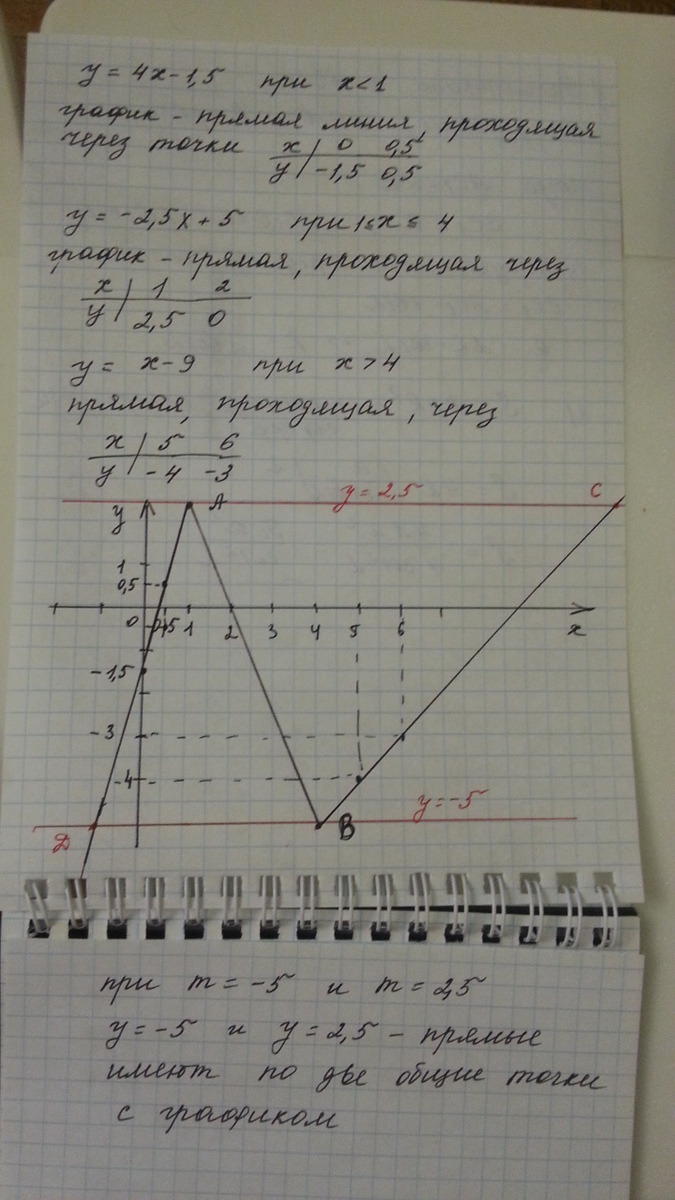 y = 4x-1,5 при x<1
график - прямая линия, проходящая
через точки x | 0 0,5
y | -1,5 0,5
y = -2,5x + 5 при 1≤x≤ 4
график - прямая, проходящая через
x | 1 2
y | 2,5 0
y = x-9 при x > 4
прямая, проходящая, через
x | 5 6
y | -4 -3
y = 2,5 C
y A
1
0,5
0 0,5 1 2 3 4 5 6 x
-1,5
-3
-4
y=-5
D B
при m = -5 и m = 2,5
y=-5 и y = 2,5 - прямые
имеют по две общие точки
с графиком